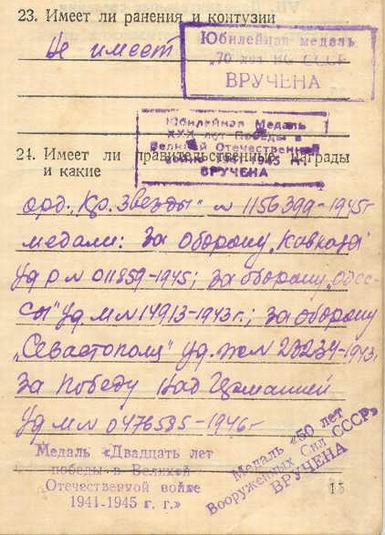 23. Имеет ли ранения и контузии
Не имеет
Юбилейная медаль
„70 лет ВС СССР"
ВРУЧЕНА
Юбилейная Медаль
ХХХ лет Победы в
Великой Отечественной
войне 1941-1945 г.г.
ВРУЧЕНА
24. Имеет ли правительственные награды
и какие
орд. „Кр. Звезды" № 1156399-1945г
медали: За оборону „Кавказа"
Уд Р № 011859-1945; За оборону „Одес-
сы" уд. М № 14913-1943г.; за оборону
„Севастополя" уд. № 23234-1943.
За Победу над Германией
Уд М № 0476535-1946г
Медаль «Двадцать лет
победы в Великой
Отечественной войне
1941-1945 г. г.»
Медаль «50 лет
Вооруженных Сил СССР»
ВРУЧЕНА
15